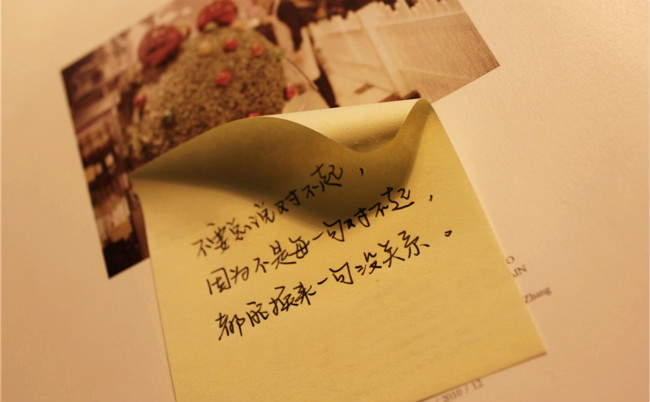 不要总说对不起，
因为不是每一句对不起，
都能换来一句没关系。
IN
Zhang
2010 / 12